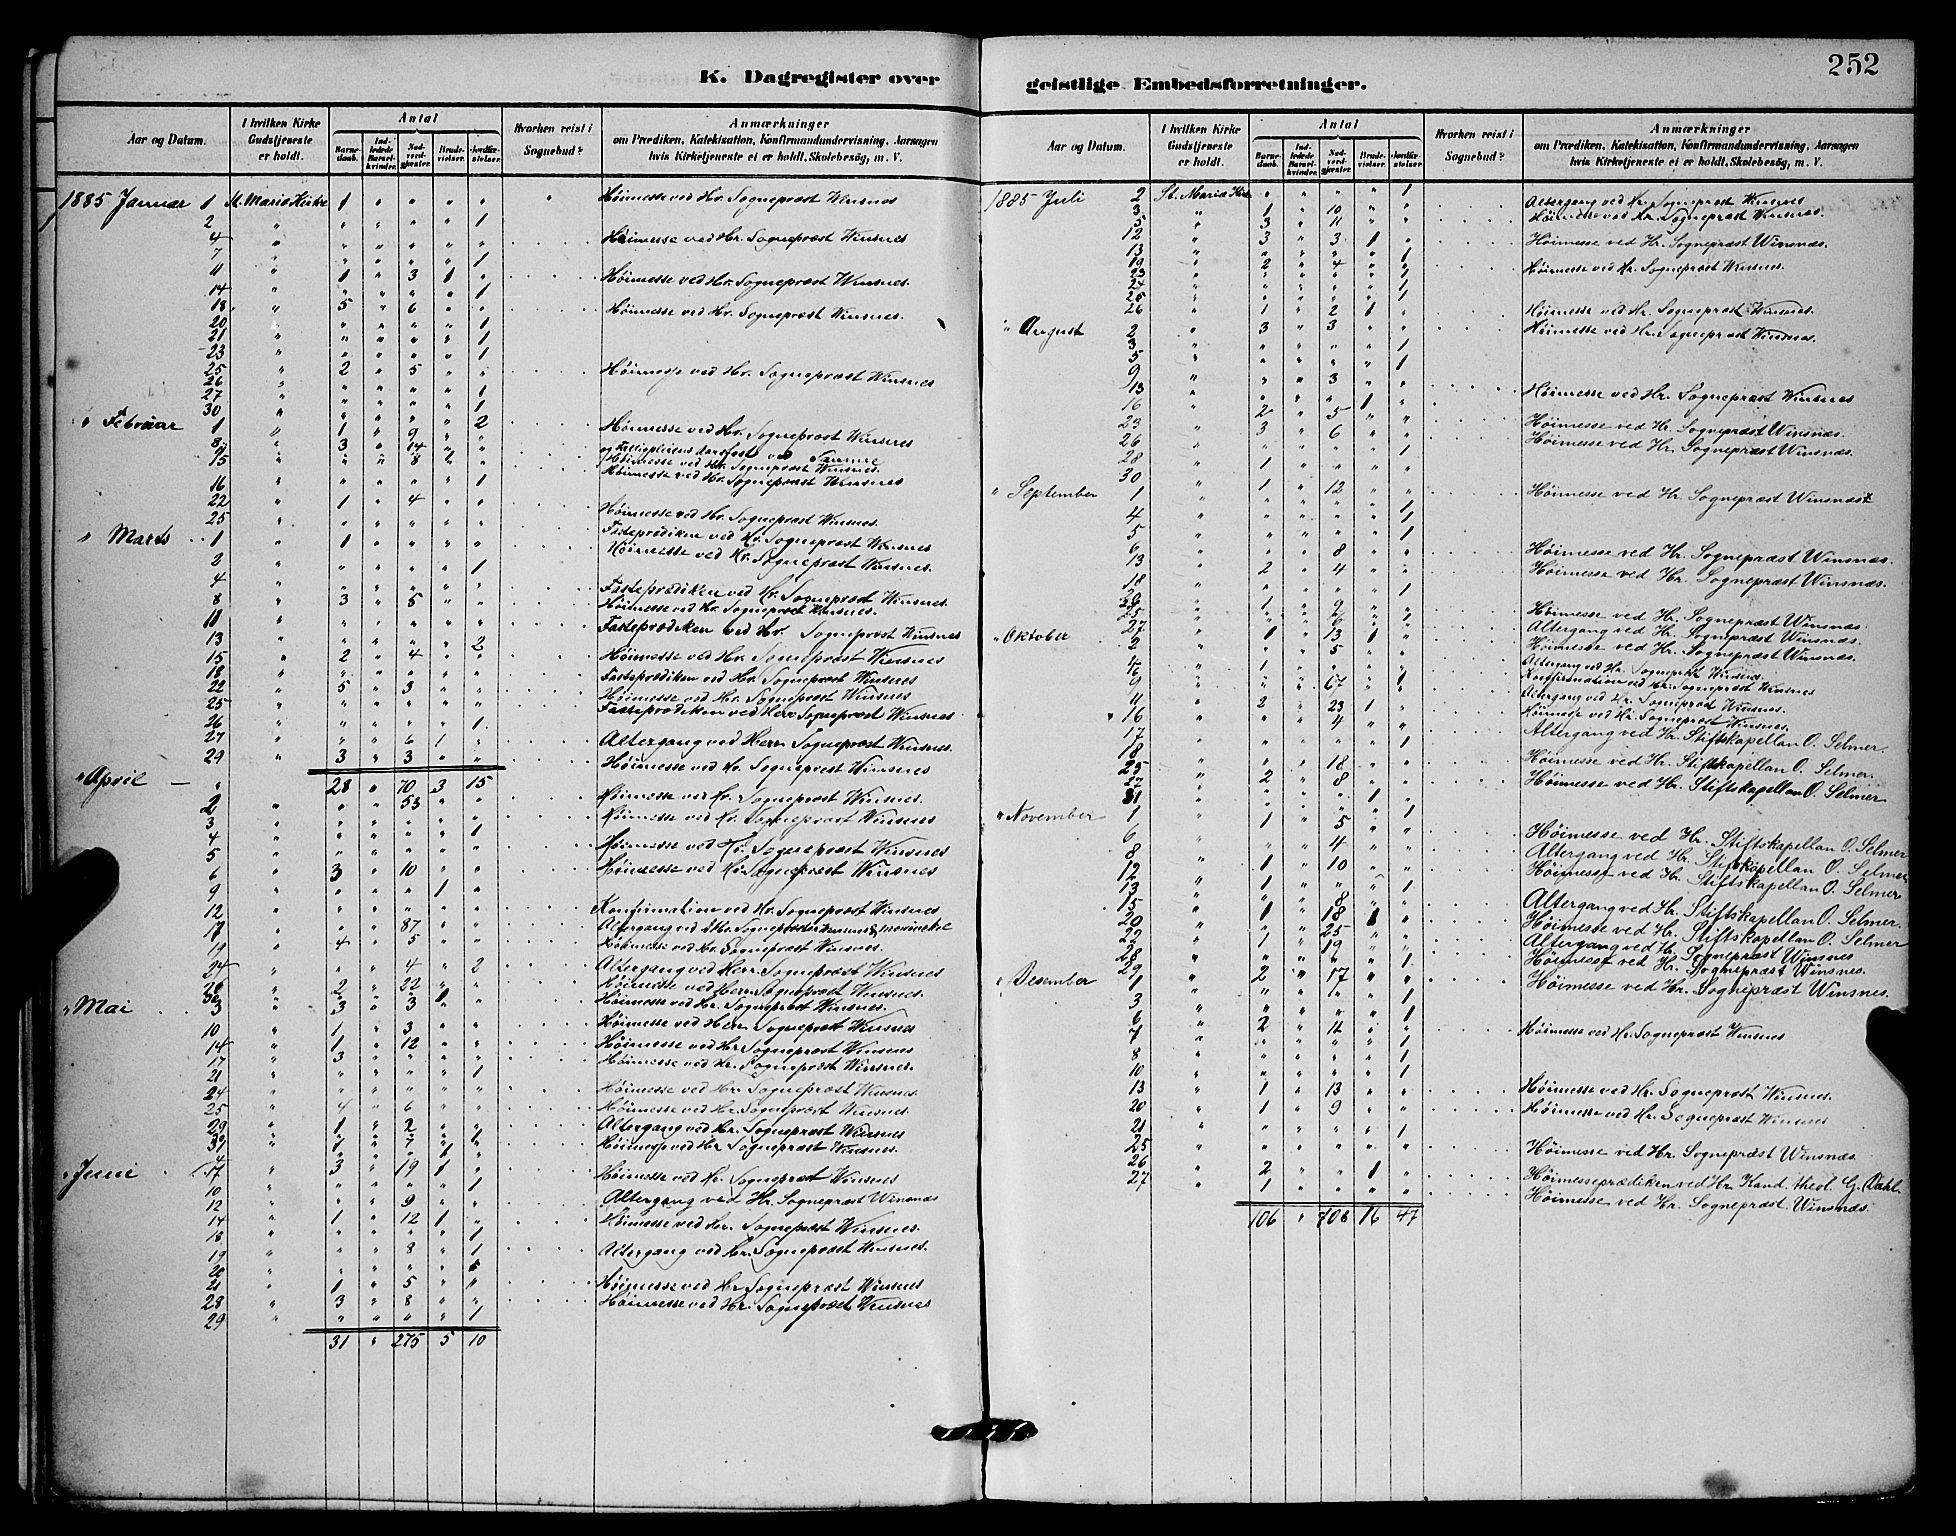 252
K. Dagregister over geistlige Embedsforretninger.
Aar og Datum. I hvilken Kirke Gudstjeneste er holdt. Antal Barnedaab. Indledede Barselkvinder. Nadverdgjæster. Brudevielser. Jordfæstelser. Hvorhen reist i Sognebud? Anmærkninger om Prædiken, Katekisation, Konfirmandundervisning, Aarsagen hvis Kirketjeneste ei er holdt, Skolebesög, m. V.
1885 Januar 1 St. Maria Kirke 1 " " " " " Höimesse ved Hr. Sognepræst Winsnes
2 " " " " " 1
4 " " " " " " Höimesse ved Hr. Sognepræst Winsnes
7 " " " " " 1
11 " 1 " 3 1 " Höimesse ved Hr. Sognepræst Winsnes.
14 " " " " " 1
18 " 5 " 6 " " Höimesse ved Hr. Sognepræst Winsnes.
20 " " " " " 1
21 " " " " " 1
23 " " " " " 1
25 " 2 " 5 " " Höimesse ved Hr. Sognepræst Winsnes
26 "
27 " " " " " 1
30 " " " " " 1
" Februar 1 " 1 " 9 " 2 Höimesse ved Hr. Sognepræst Winsnes
8 " 3 " 14 " "
15 " " " 8 " " Höimesse ved Hr. Sognepræst Winsnes.
16 " " " " " 1 Höimesse ved Hr. Sognepræst Winsnes
22 " 1 " 4 " " Höimesse ved Hr. Sognepræst Winsnes.
25 " " " " " " Fasteprædiken ved Hr. Sognepræst Winsnes
" Marts 1 " 1 " " " " Höimesse ved Hr. Sognepræst Winsnes.
2 " " " " " 1
4 " " " " " " Fasteprædiken ved Hr. Sognepræst Winsnes.
8 " 3 " 5 " " Höimesse ved Hr. Sognepræst Winsnes.
11 " " " " " " Fasteprædiken ved Hr. Sognepræst Winsnes
13 " " " " " 2
15 " 2 " 4 " " Höimesse ved Hr. Sognepræst Winsnes
18 " " " " " " Fasteprediken ved Hr. Sognepræst Winsnes
22 " 5 " 3 " " Höimesse ved Hr. Sognepræst Winsnes
25 " " " " " " Fasteprædiken ved Herr Sognepræst Winsnes
26 " " " " " 1
27 " " " 6 1 " Altergang ved Herr Sognepræst Winsnes.
29 " 3 " 3 " " Höimesse ved Hr. Sognepræst Winsnes
" April 28 " 70 3 15
2 " " " 53 " " Höimesse ved Hr. Sognepræst Winsnes.
3 " " " " " " Höimesse ved Hr. Sognepræst Winsnes
4 " " " " " 1
5 " " " " " " Höimesse ved Hr. Sognepræst Winsnes
6 " 3 " 10 " " Höimesse ved Hr. Sognepræst Winsnes
9 " " " " 1 "
12 " " " " " " Konfirmation ved Hr. Sognepræst Winsnes
17 " " " 87 " " Altergang ved
19 " 4 " 5 " " Höimesse ved Hr. Sognepræst Winsnes.
24 " " " 4 " 2 Altergang ved Herr Sognepræst Winsnes
26 " 2 " 22 " " Höimesse ved Herr Sognepræst Winsnes.
" Mai 3 " 3 " 3 1 " Höimesse ved Hr. Sognepræst Winsnes.
10 " 1 " 3 " " Höimesse ved Herr Sognepræst Winsnes
14 " 1 " 12 " " Höimesse ved Hr Sognepræst Winsnes
17 " 3 " " " " Höimesse ved Hr. Sognepræst Winsnes.
21 " " " " " 1
24 " " " " " " Höimesse ved Hr. Sognepræst Winsnes.
25 " 4 " 6 " " Höimesse ved Hr. Sognepræst Winsnes.
29 " 1 " 2 " " Altergang ved Hr. Sognepræst Winsnes
31 " 1 " 7 " " Höimesse ved Hr Sognepræst Winsnes.
" Juni 7 " 3 " 19 1 " Höimesse ved Hr. Sognepræst Winsnes
10 " " " " " 1
12 " " " 9 " " Altergang ved Hr. Sognepræst Winsnæs
14 " 1 " 12 1 " Höimesse ved Hr. Sognepræst Winsnes.
18 " " " " " 1
19 " " " 8 " 1 Altergang ved Hr. Sognepræst Winsnes.
20 "
21 " 1 " 5 " " Höimesse ved Hr Sognepræst Winsnes
28 " 3 " 8 " " Höimesse ved Hr. Sognepræst Winsnes
29 " " " " " 1
31 " 275 5 10
Aar og Datum. I hvilken Kirke Gudstjeneste er holdt. Antal Barnedaab. Indledede Barselkvinder. Nadverdgjæster. Brudevielser. Jordfæstelser. Hvorhen reist i Sognebud? Anmærkninger om Prædiken, Katekisation, Konfirmandundervisning, Aarsagen hvis Kirketjeneste ei er holdt, Skolebesög, m. V.
1885 Juli 2 St. Maria Kirke " " " " 1
3 " 1 " 10 " " Altergang ved Hr. Sognepræst Winsnes
5 " 3 " 11 " " Höimesse ved Hr. Sognepræst Winsnæs.
12 " 3 " 3 1 " Höimesse ved Hr. Sognepræst Winsnæs.
13 " " " " " 1
19 " 2 " 4 " " Höimesse ved Hr. Sognepræst Winsnes.
23 " " " " " 1
24 " " " " " 1
25 " " " " " 1
26 " 1 " 2 1 " Höimesse ved Hr. Sognepræst Winsnes.
" August 2 " 3 " 3 " " Höimesse ved Hr. Sognepræst Winsnæs.
3 " " " " " 1
5 " " " " " 1
9 " " " 3 " " Höimesse ved Hr. Sognepræst Winsnes
13 " " " " 1 "
16 " 2 " 5 " " Höimesse ved Hr. Sognepræst Winsnæs.
23 " 3 " 6 " " Höimesse ved Hr. Sognepræst Winsnæs.
26 " " " " " 1
28 " 1 " " " "
30 " 1 " 12 " " Höimesse ved Hr. Sognepræst Winsnæs
" September 1 " " " " " 1
4 " " " " " 1
5 " " " " " 1
6 " " " 8 " " Höimesse ved Hr. Sognepræst Winsnæs.
13 " 2 " 4 " " Höimesse ved Hr. Sognepræst Winsnæs.
18 " " " " " 1
20 " 1 " 9 " " Höimesse ved Hr. Sognepræst Winsnæs.
25 " " " 6 " " Altergang ved Hr. Sognepræst Winsnæs.
27 " 1 " 13 1 " Höimesse ved Hr. Sognepræst Winsnæs.
" Oktober 2 " " " 5 " " Altergang ved Hr. Sognepræst Winsnes
4 " 1 " " " " Konfirmation ved Hr. Sognepræst Winsnes
9 " " " 67 " " Altergang ved Hr. Sognepræst Winsnes.
11 " 2 " 23 1 " Höimesse ved Hr. Sognepræst Winsnes
" 16 " " " 4 " " Altergang ved Hr. Stiftskapellan O. Selmer.
17 " " " " " 1
18 " " " 18 " " Höimesse ved Hr. Stiftskapellan O. Selmer.
25 " 2 " 8 " " Höimesse ved Hr. Stiftskapellan O. Selmer
27 " " " " 1 "
31 " " " " " 1
" November 1 " 1 " 5 " " Höimesse ved Hr. Stiftskapellan O. Selmer
6 " " " 4 " " Altergang ved Hr. Stiftskapellan O. Selmer
8 " 1 " 10 " " Höimesse ved Hr. Stiftskapellan O. Selmer
12 " 1 " " " 1
13 " " " 8 " " Altergang ved Hr. Stiftskapellan O. Selmer.
15 " 1 " 18 1 " Höimesse ved Hr. Stiftskapellan O. Selmer.
20 " " " 25 " " Altergang ved Hr. Stiftskapellan O. Selmer
22 " 1 " 19 " " Höimesse ved Hr. Sognepræst Winsnes
28 "
29 " 2 " 17 " " Höimesse ved Hr. Sognepræst Winsnæs.
" Desember 1 " " " " " 1
3 " " " " " 1
6 " 2 " 11 " " Höimesse ved Hr. Sognepræst Winsnes
7 " " " " " 1
8 " " " " " 1
10 " " " " " 1
13 " 1 " 13 " " Höimesse ved Hr. Sognepræst Winsnes.
20 " 1 " 9 " " Höimesse ved Hr. Sognepræst Winsnes
21 " " " " " 1
25 " " " " " " Höimesse ved Hr. Sognepræst Winsnæs.
26 " 2 " " 1 " Höimesseprædiken ved Hr. Kand. theol. G. Dahl.
27 " 1 " " " " Höimesse ved Hr. Sognepræst Winsnæs.
106 " 408 16 47